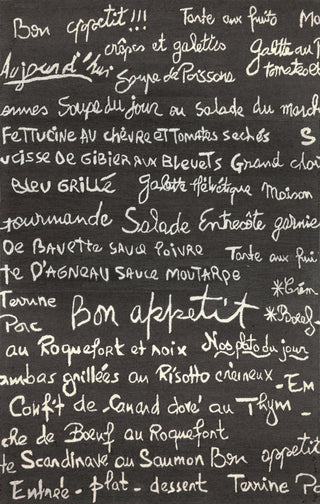 Bon appetit!!! Tarte aux fruits Mo
crêpes et galettes Galette au P
Aujourd'hui Soupe de Poissons tomates et
ennes Soupe du jour ou salade du march
FETTUCINE AU CHÈVRE ET TOMATES SECHÉS S
UCISSE DE GIBIER AUX BLEUETS Grand choi
BLEU GRILLÉ Galette Helvétique Maison
gourmande Salade Entrecôte garnie
DE BAVETTE SAUCE POIVRE Tarte aux frui
te D'AGNEAU SAUCE MOUTARDE
*Crèm
Terrine Bon appetit
Porc Nos plats du jour
au Roquefort et noix
ambas grillées au Risotto crèmeux - EM
Confit de Canard doré au Thym -
che de Bœuf au Roquefort
te Scandinave au Saumon Bon appetit
Entrée - plat - dessent Terrine Po